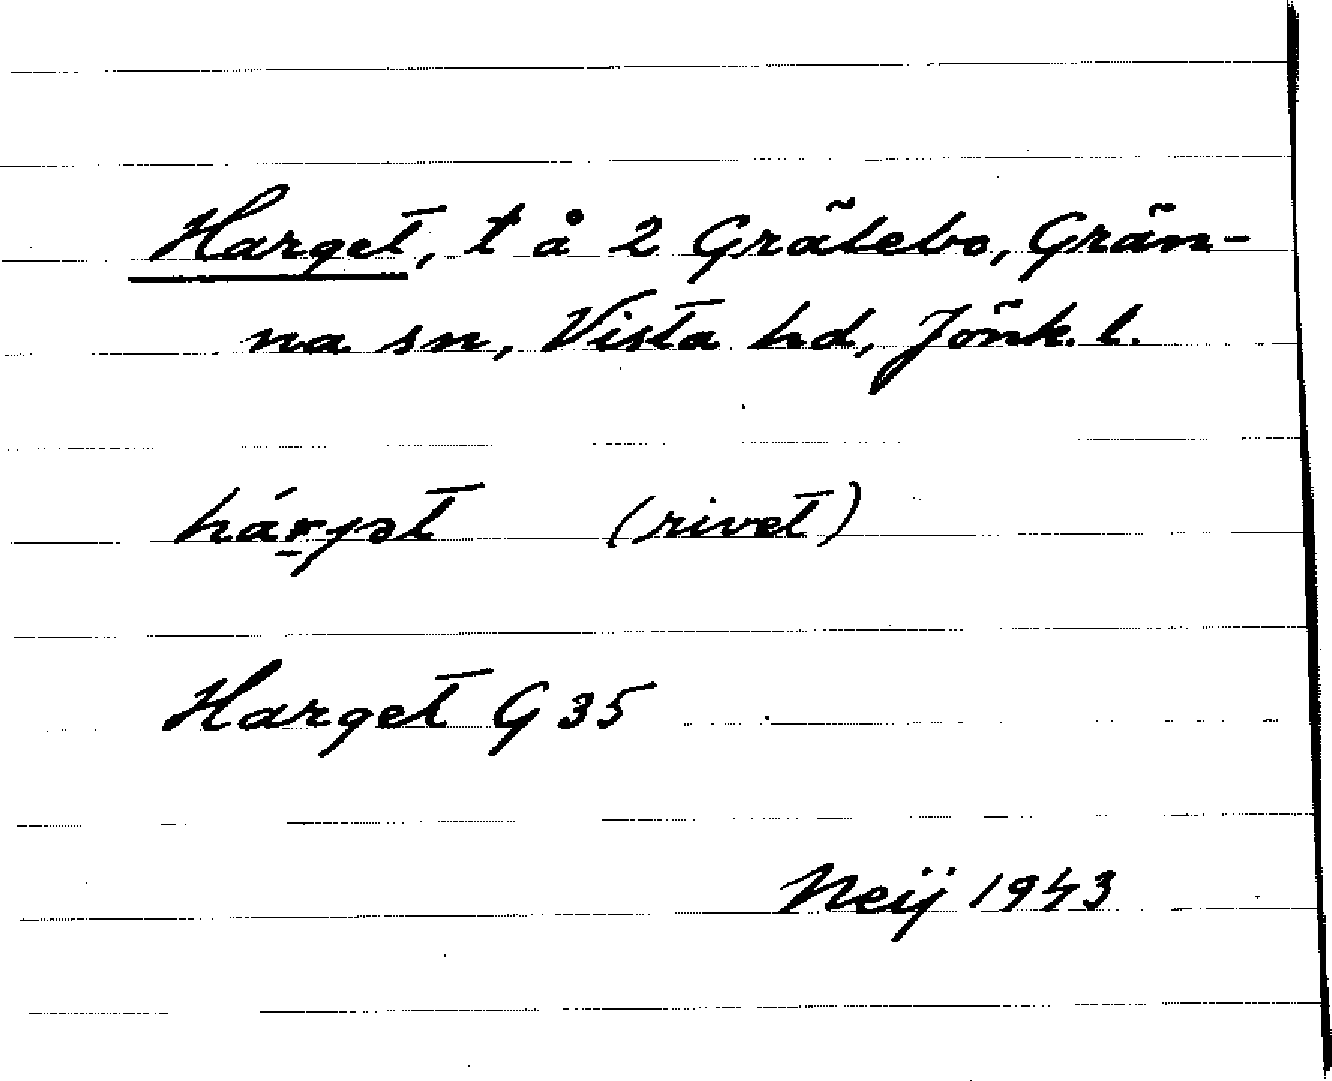 Harget, t å 2 Grälebo, Grän-
na sn, Vista hd, Jönk. l.
(rivet)
Harget G 35
Neij 1943